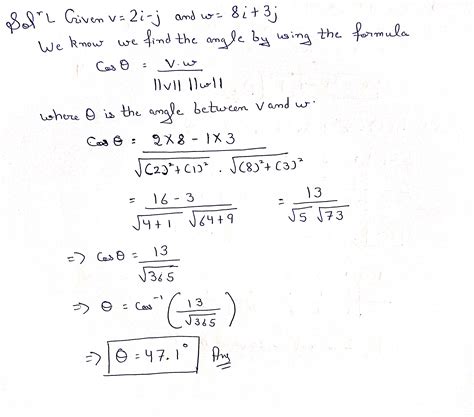 Solⁿ L Given v = 2i - j and w = 8i + 3j
We know we find the angle by using the formula
Cos θ = v.w / ||v|| ||w||
where θ is the angle between v and w.
Cos θ = 2×8 - 1×3 / √(2)²+(1)² . √(8)²+(3)²
= 16 - 3 / √4+1 √64+9 = 13 / √5 √73
=> Cos θ = 13 / √365
=> θ = Cos⁻¹ (13 / √365)
=> θ = 47.1° Ans